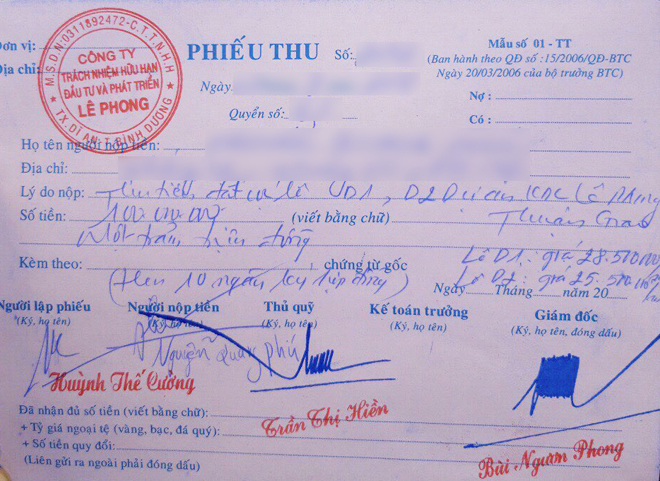 Đơn vị:
Địa chỉ:
M.S.D.N:0311892472-C.T.T.N.H.H
CÔNG TY
TRÁCH NHIỆM HỮU HẠN
ĐẦU TƯ VÀ PHÁT TRIỂN
LÊ PHONG
TX.DĨ AN-T.BÌNH DƯƠNG
PHIẾU THU
Số:
Ngày
Quyển số:
Mẫu số 01 - TT
(Ban hành theo QĐ số :15/2006/QĐ-BTC
Ngày 20/03/2006 của bộ trưởng BTC)
Nợ :
Có :
Họ tên người nộp tiền:
Địa chỉ:
Lý do nộp: Thu tiền đặt cọc lô D1, D2 Dự án KDC Lê Phong
Thuận Giao
Số tiền: 100.000.000 (viết bằng chữ)
Một trăm triệu đồng
Lô D1: giá 28.500.000
Kèm theo: chứng từ gốc
Lô D2: giá 25.500.000
(Hẹn 10 ngày ký hợp đồng)
Ngày Tháng năm 20
Người lập phiếu Người nộp tiền Thủ quỹ Kế toán trưởng Giám đốc
(Ký, họ tên) (Ký, họ tên) (Ký, họ tên) (Ký, họ tên) (Ký, họ tên, đóng dấu)
Nguyễn Quang Phú
Huỳnh Thế Cường
Trần Thị Hiền
Bùi Ngươn Phong
Đã nhận đủ số tiền (viết bằng chữ):
+ Tỷ giá ngoại tệ (vàng, bạc, đá quý):
+ Số tiền quy đổi:
(Liên gửi ra ngoài phải đóng dấu)